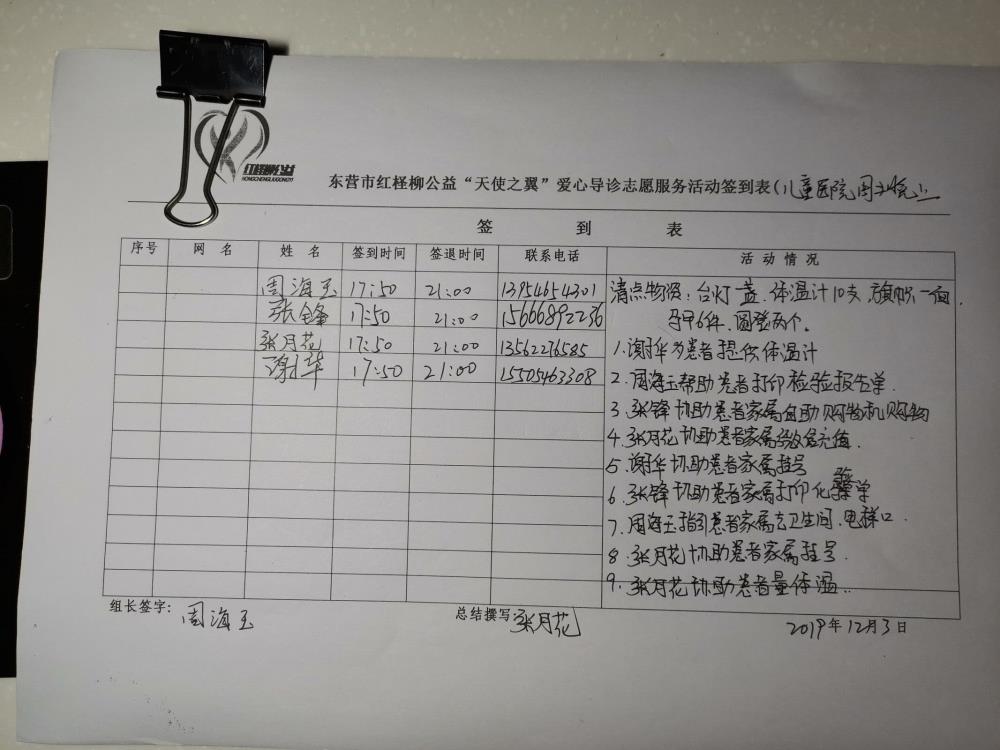 红柽柳公益
HONGCHENGLIUGONGYI
东营市红柽柳公益“天使之翼”爱心导诊志愿服务活动签到表(儿童医院周二晚上
签 到 表
序号 网 名 姓 名 签到时间 签退时间 联系电话 活 动 情 况
周海玉 17:50 21:00 13954654301 清点物资：台灯一盏.体温计10支,旗帜一面.
张锋 17:50 21:00 15666892236 马甲6件.圆凳两个。
张月花 17:50 21:00 13562276585 1.谢华为患者提供体温计
谢华 17:50 21:00 15505463308 2.周海玉帮助患者打印检验报告单.
3.张锋协助患者家属自助购物机购物
4.张月花协助患者家属缴费充值.
5.谢华协助患者家属挂号
6.张锋协助患者家属打印化验单
7.周海玉指引患者家属去卫生间.电梯口.
8.张月花协助患者家属挂号.
9.张月花协助患者量体温..
组长签字: 周海玉 总结撰写 张月花
2019年12月3日